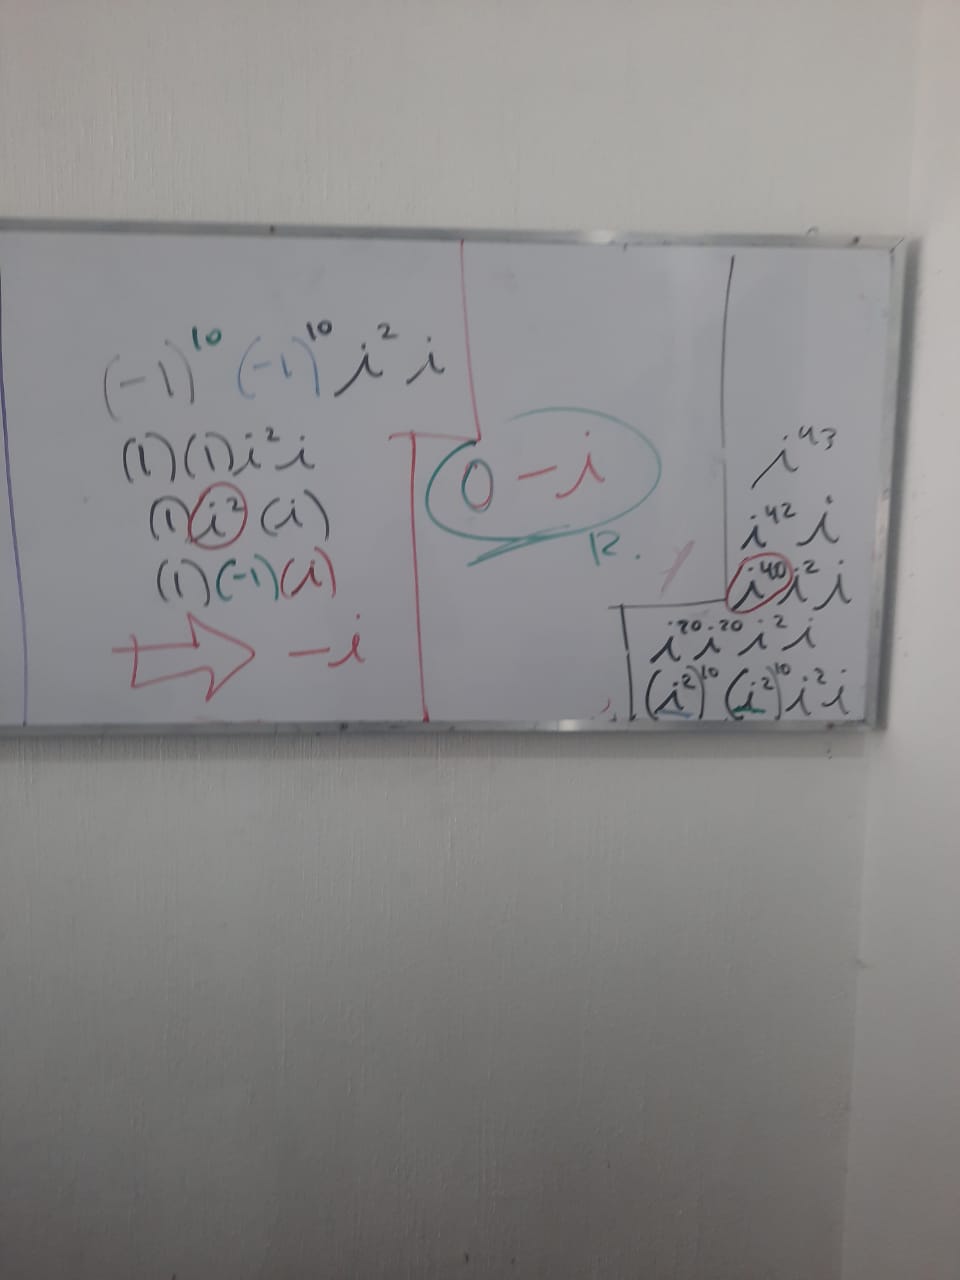 (-1)¹⁰ (-1)¹⁰ i² i
(1)(1)i² i
(1) i² (i)
(1)(-1)(i)
-i
0 - i
R.
i⁴³
i⁴² i
i⁴⁰ i² i
i²⁰ · i²⁰ i² i
(i²)¹⁰ (i²)¹⁰ i² i